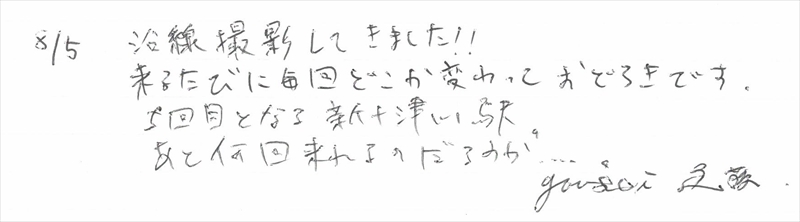 8/5 沿線撮影してきました!!
来るたびに毎回どこか変わっておどろきです.
5回目となる新十津川駅
あと何回来れるのだろうか....